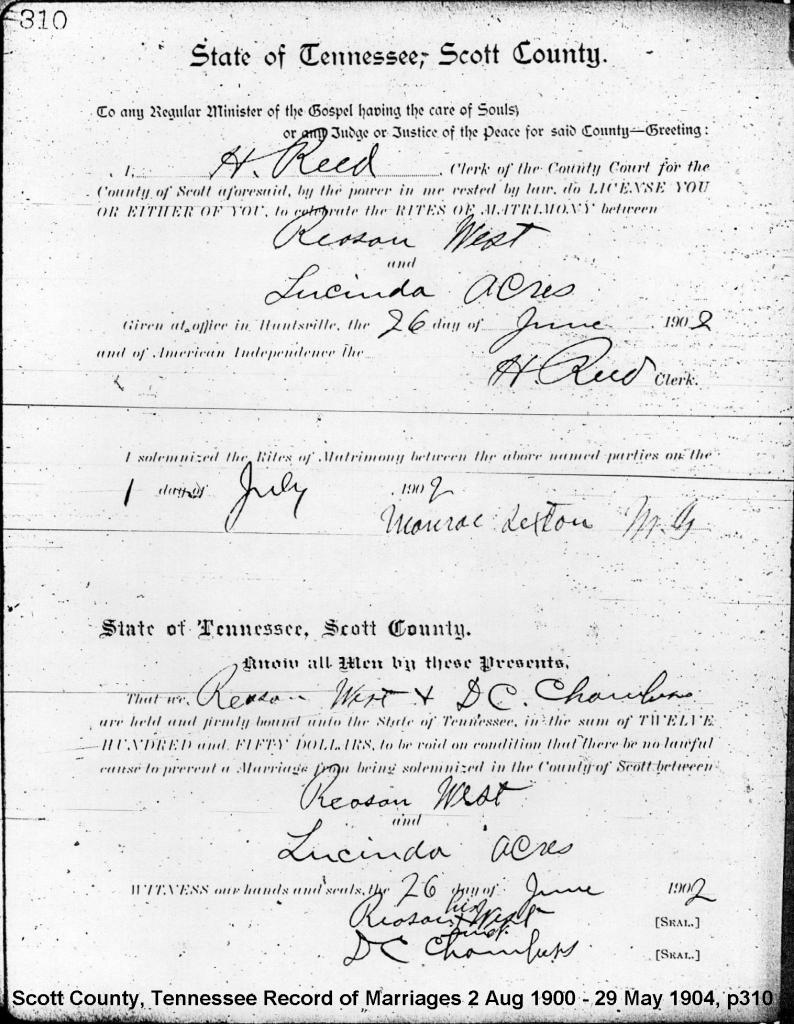 310
State of Tennessee, Scott County.
To any Regular Minister of the Gospel having the care of Souls;
or any Judge or Justice of the Peace for said County—Greeting:
I, H. Reed, Clerk of the County Court for the
County of Scott aforesaid, by the power in me vested by law, do LICENSE YOU
OR EITHER OF YOU, to celebrate the RITES OF MATRIMONY between
Reason West
and
Lucinda Acres
Given at office in Huntsville, the 26 day of June 1902
and of American Independence the
H. Reed Clerk.
I solemnized the Rites of Matrimony between the above named parties on the
1 day of July 1902
Monroe Sexton M.G
State of Tennessee, Scott County.
Know all Men by these Presents,
That we, Reason West & D C. Chambers
are held and firmly bound unto the State of Tennessee, in the sum of TWELVE
HUNDRED and FIFTY DOLLARS, to be void on condition that there be no lawful
cause to prevent a Marriage from being solemnized in the County of Scott between
Reason West
and
Lucinda Acres
WITNESS our hands and seals, the 26 day of June 1902
his
Reason x West [SEAL.]
mark
D C Chambers [SEAL.]
Scott County, Tennessee Record of Marriages 2 Aug 1900 - 29 May 1904, p310